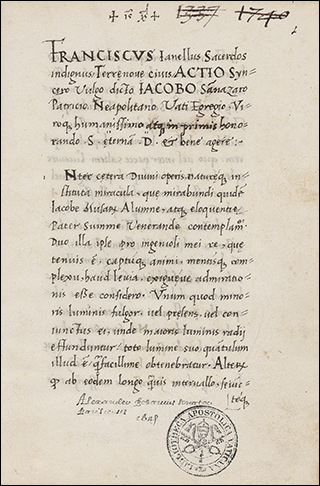 + ic χρ + 1337 1740
FRANCISCVS Ianellus Sacerdos
indignus Terrenoue ciuis ACTIO Syn=
cero Vulgo dicto IACOBO Sanazaro
Patricio Neapolitano Vati Egregio Vi=
roq humanissimo atq in primis hono=
rando S. eternā D. & bene agere:
Nter cetera Diuini operis naturęq in=
stituta miracula, que mirabundi quidē
Iacobe Musarū Alumne, atq eloquentię
Pater Summe Venerande contemplam'
Duo illa ipse pro ingenioli mei re, que
tenuis ē, captuq animi, mentisq com=
plexu, haud leuia, exiguęue admiratio=
nis esse considero. Vnum quod mino=
ris luminis fulgor, uel presens, uel con
iunctus ei, unde maioris luminis radij
effunduntur, toto lumine suo, quātulum
illud ē, q̄facillime obtenebratur. Alterū
q ab eodem longo quis interuallo, seiūc=
toq
BIBLIOTHECA APOSTOLICA VATICANA